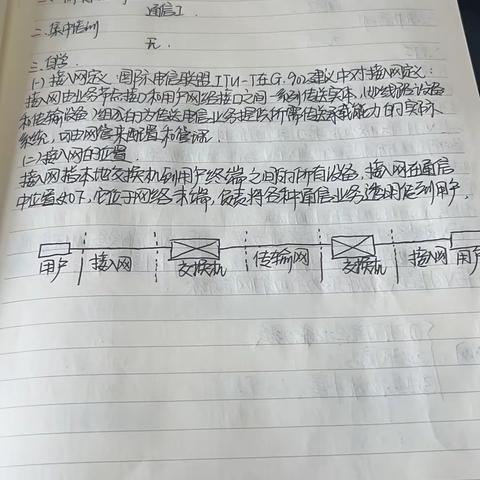 通信工.
二.集中培训
无.
三.自学.
(一)接入网定义:国际电信联盟ITU-T在G.902建议中对接入网定义:
接入网由业务节点接口和用户网络接口之间一系列传送实体(如线路设备
和传输设备)组成的为传送电信业务提供所需传送承载能力的实体
系统,可由网管来配置和管理.
(二)接入网的位置.
接入网指本地交换机到用户终端之间的所有设备,接入网在通信
中位置如下,它位于网络末端,负责将各种通信业务透明传到用户.
用户 接入网 交换机 传输网 交换机 接入网 用户